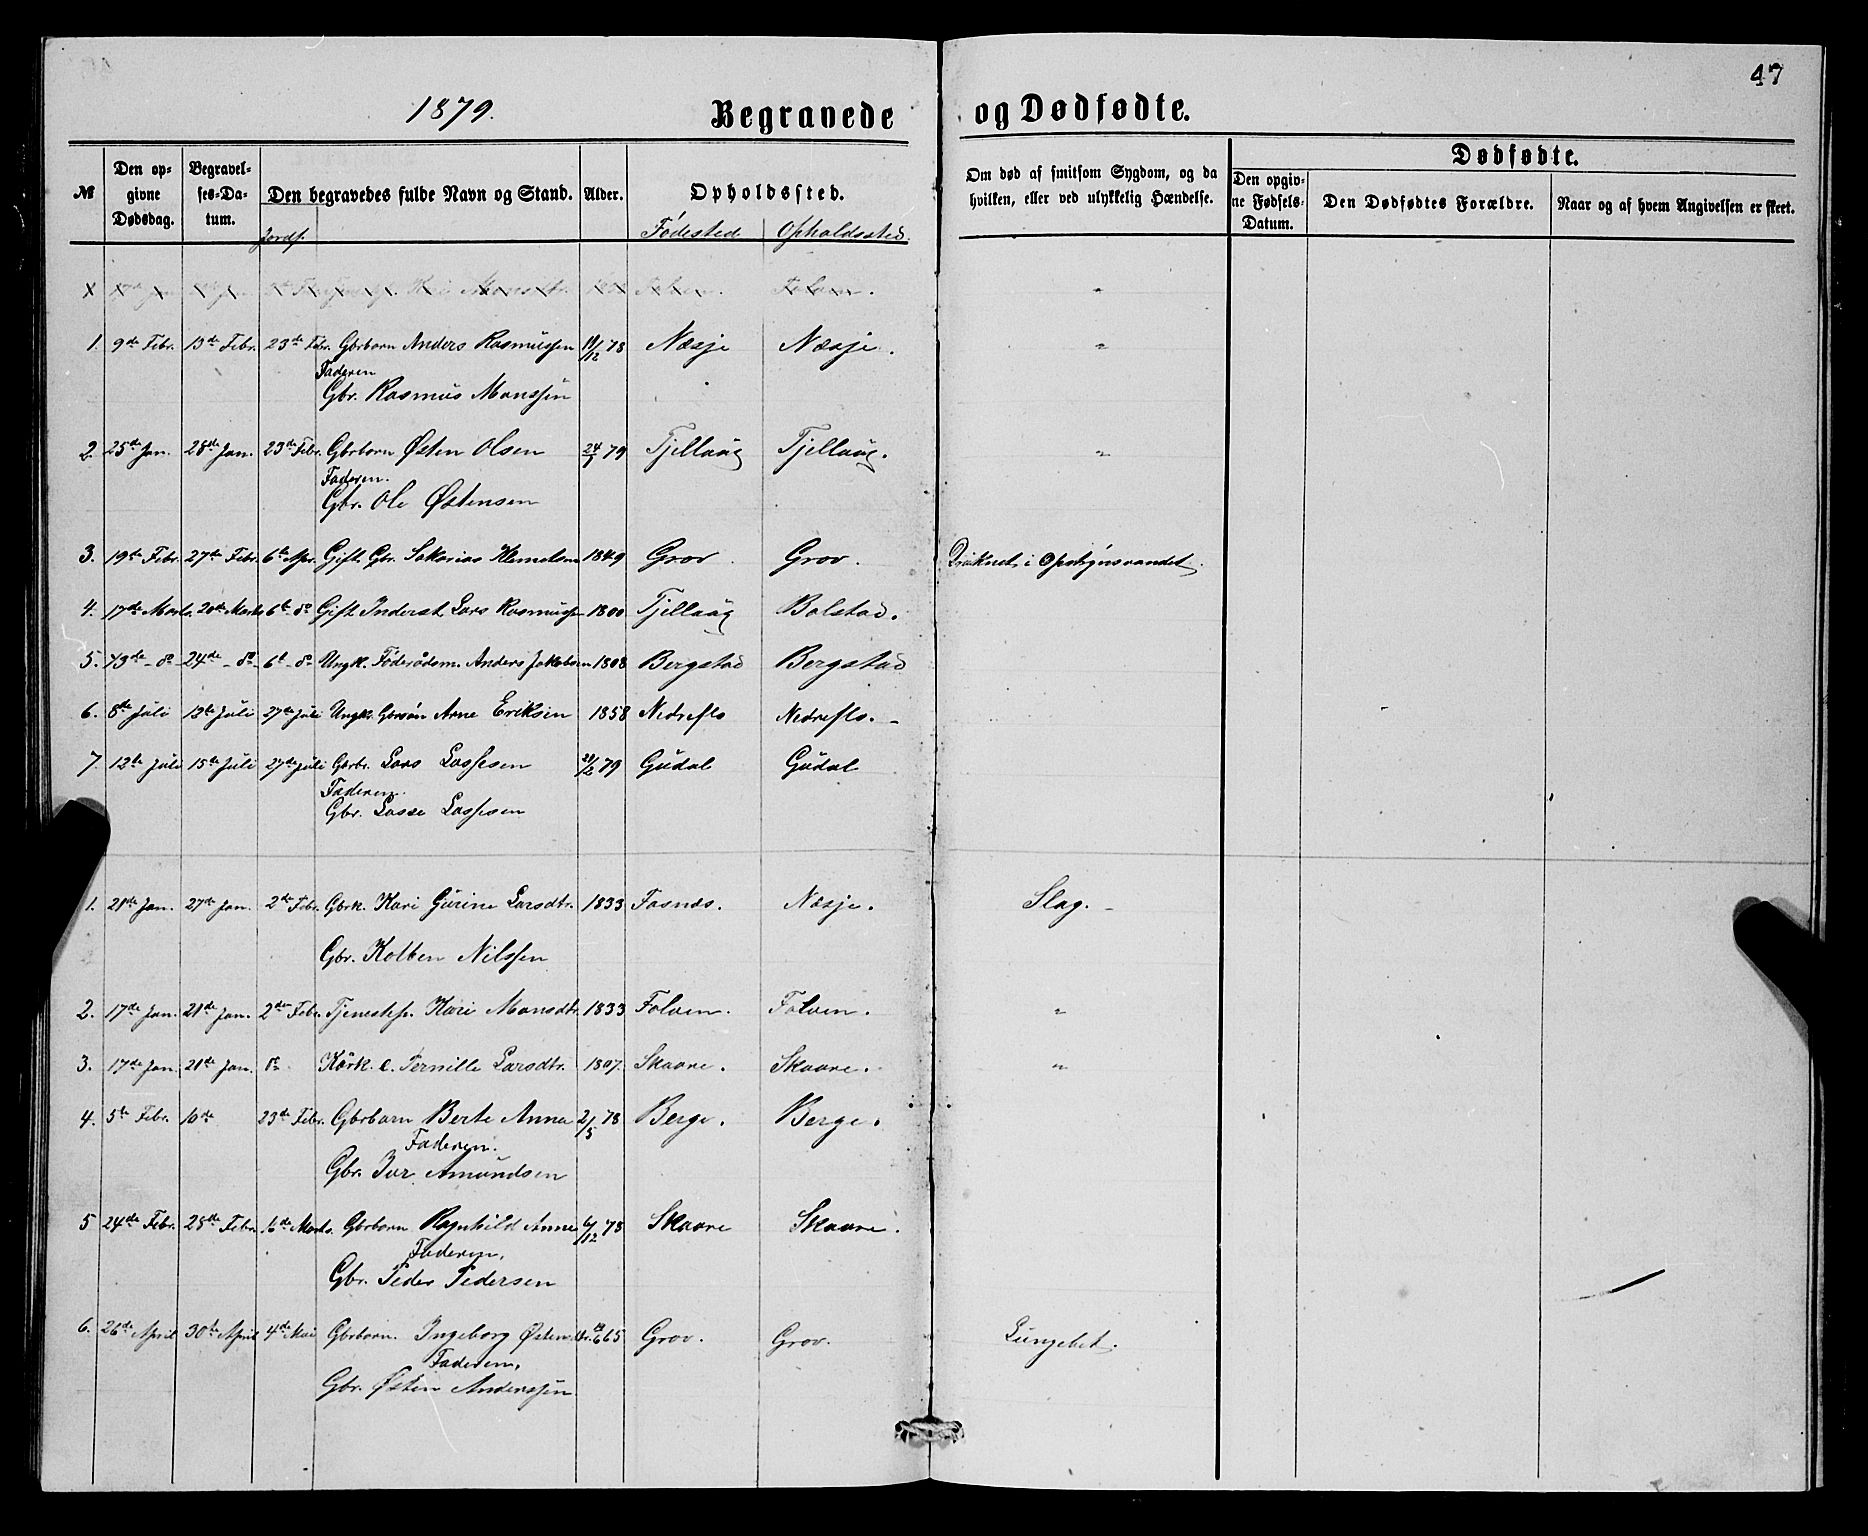 47
1879.
Begravede og Dødfødte.
№ Den op- givne Dødsdag. Begravel- ses-Da- tum. Den begravedes fulde Navn og Stand. Alder. Opholdssted. Om død af smitsom Sygdom, og da hvilken, eller ved ulykkelig Hændelse. Dødfødte.
Den opgiv- ne Fødsels- Datum. Den Dødfødtes Forældre. Naar og af hvem Angivelsen er skeet.
Jordf. Födested Opholdssted
1. 9de Febr. 13de Febr. 23de Febr. Gbrbarn Anders Rasmussen 78 Næsje Næsje. "
Faderen
Gbr. Rasmus Monssen
2. 25de Jan. 28de Jan. 23de Febr. Gbrbarn Østen Olsen 24/1 79 Tjellaug Tjellaug. "
Faderen.
Gbr. Ole Østensen
3. 19de Febr. 27de Febr. 6te Apr. Gift Gbr. Sakarias Klemetsen 1849 Grov Grov. Druknet i Opstrynsvandet.
4. 17de Marts. 20de Marts 6te do Gift Inderst Lars Rasmussen 1800 Tjellaug Bolstad.
5. 13de - do 24de - do 6t - do Ungk. Föderådsm. Anders Jakobsen 1808 Bergstad Bergstad
6. 8de Juli 12te Juli 27de Juli Ungk. Gbrsön Arne Eriksen 1858 Nedreflo Nedreflo. -
7. 12te Juli 15de Juli 27de Juli Gbrbr. Lars Lassesen 79 Gudal Gudal
Faderen.
Gbr. Lasse Lassesen
1. 21de Jan. 27de Jan. 2de Febr. Gbrk. Kari Gurine Larsdtr. 1833 Fosnæs. Næsje. Slag. -
Gbr. Kolben Nilssen
2. 17de Jan. 21de Jan. 2de Febr. Tjenestep. Kari Monsdtr. 1833 Folven. Folven. "
3. 17de Jan. 21de Jan. do Kårk. e. Pernille Larsdtr. 1807. Skaare. Skaare. "
4. 5te Febr. 10de 23de Febr. Gbrbarn Berte Anna 2/5 78 Berge. Berge.
Faderen.
Gbr. Ivr Amundsen
5 24de Febr. 28de Febr. 16de Marts. Gbrbarn Ragnhild Anne 6/12 78 Skaare Skaare.
Faderen.
Gbr. Peder Pedersen
6. 26de April 30te April 4de Mai Gbrbarn. Ingeborg Østensdtr. 65 Grov. Grov. Lungebet.
Faderen.
Gbr. Østen Anderssen